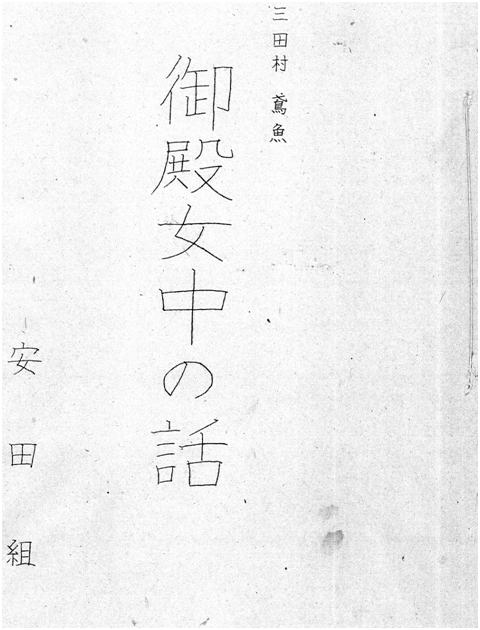 三田村 鳶魚
御殿女中の話
安田組